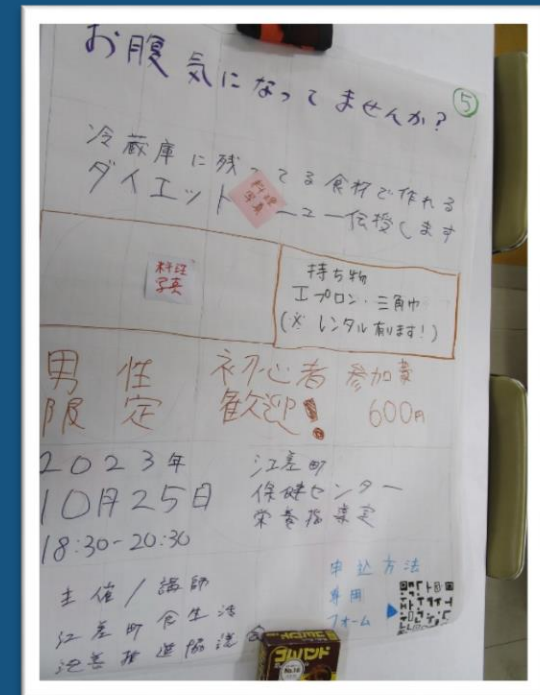 お腹気になってませんか?
⑤
冷蔵庫に残ってる食材で作れる
ダイエット ニュー伝授します
料理
写真
料理
写真
持ち物
エプロン・三角巾
(※レンタル有ります!)
男性
限定
初心者
歓迎!
参加費
600円
2023年
10月25日
18:30-20:30
江差町
保健センター
栄養指導室
主催/講師
江差町食生活
改善推進協議会
申込方法
専用
フォーム
ゴムバンド